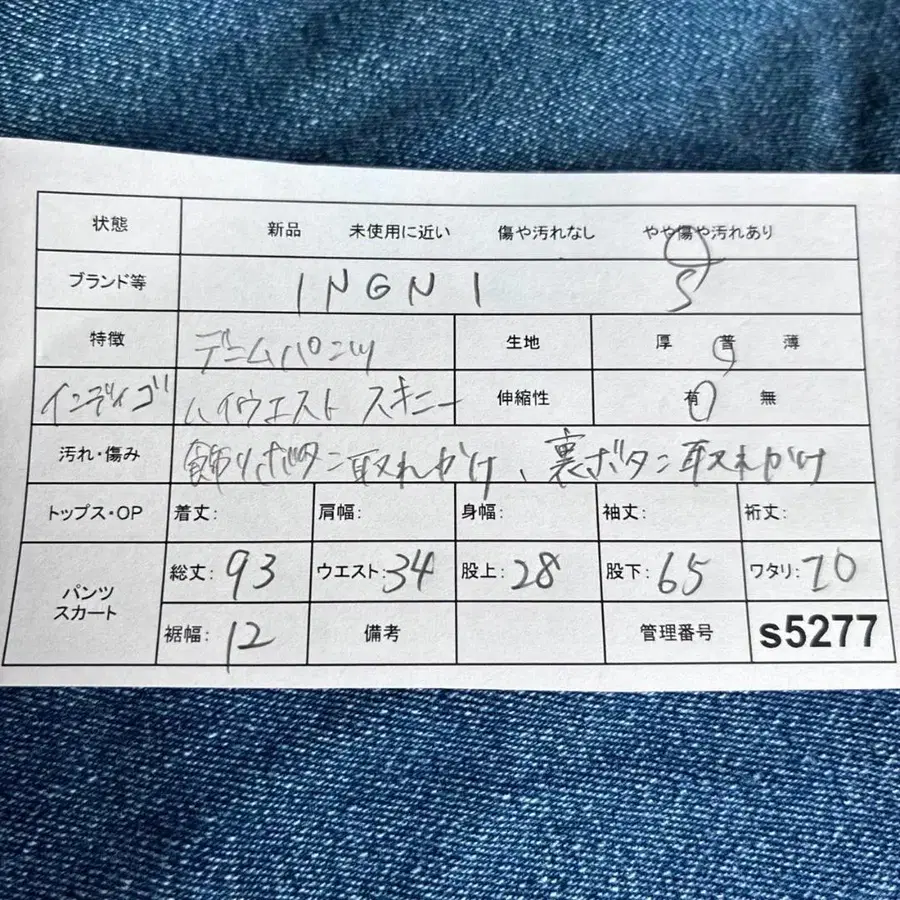 状態 新品 未使用に近い 傷や汚れなし やや傷や汚れあり
ブランド等 INGNI S
特徴 デニムパンツ 生地 厚 普 薄
インディゴ ハイウエスト スキニー 伸縮性 有 無
汚れ・傷み 飾りボタン取れかけ、裏ボタン取れかけ
トップス・OP 着丈: 肩幅: 身幅: 袖丈: 裄丈:
パンツ スカート 総丈: 93 ウエスト: 34 股上: 28 股下: 65 ワタリ: 20
裾幅: 12 備考 管理番号 s5277